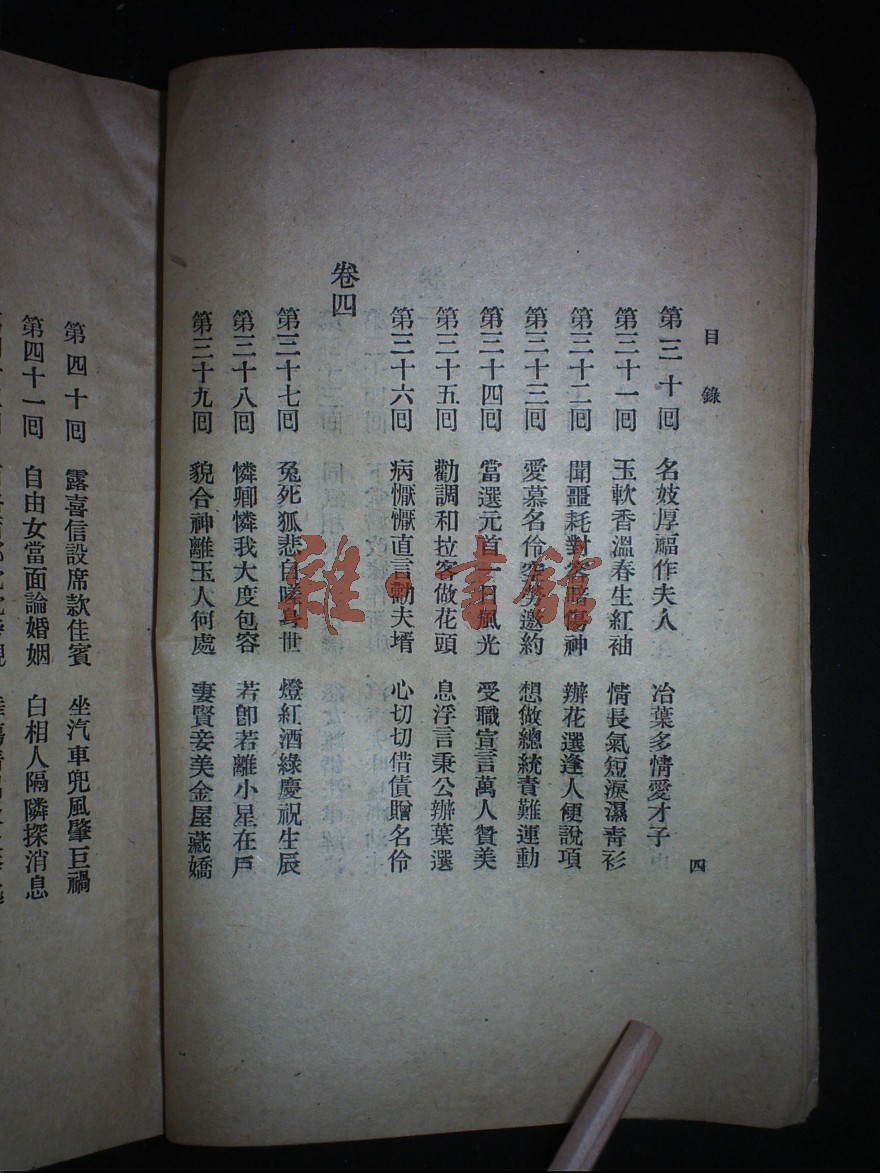 目錄
四
第三十回 名妓厚福作夫人 冶葉多情愛才子
第三十一回 玉軟香溫春生紅袖 情長氣短淚濕靑衫
第三十二回 聞噩耗對客暗傷神 辦花選逢人便說項
第三十三回 愛慕名伶空勞邀約 想做總統責難運動
第三十四回 當選元首一日風光 受職宣言萬人贊美
第三十五回 勸調和拉客做花頭 息浮言秉公辦葉選
第三十六回 病懨懨直言勸夫壻 心切切借債贈名伶
卷四
第三十七回 兔死狐悲自嗟身世 燈紅酒綠慶祝生辰
第三十八回 憐卿憐我大度包容 若卽若離小星在戶
第三十九回 貌合神離玉人何處 妻賢妾美金屋藏嬌
第四十回 露喜信設席款佳賓 坐汽車兜風肇巨禍
第四十一回 自由女當面論婚姻 白相人隔隣探消息
雜·書館